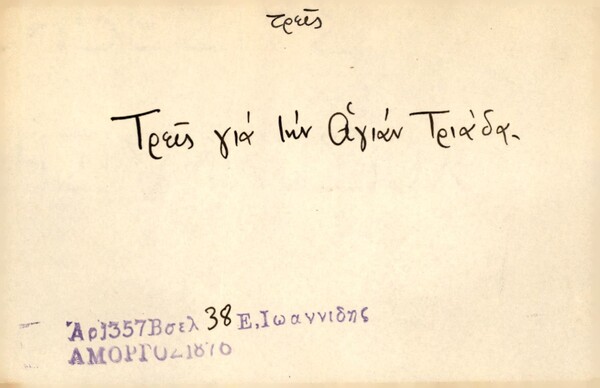 τρεῖς
Τρεῖς γιά τήν Ἁγιάν Τριάδα.
Ἀρ1357Βσελ 38 Ε,Ιωαννιδης
ΑΜΟΡΓΟΣ1876